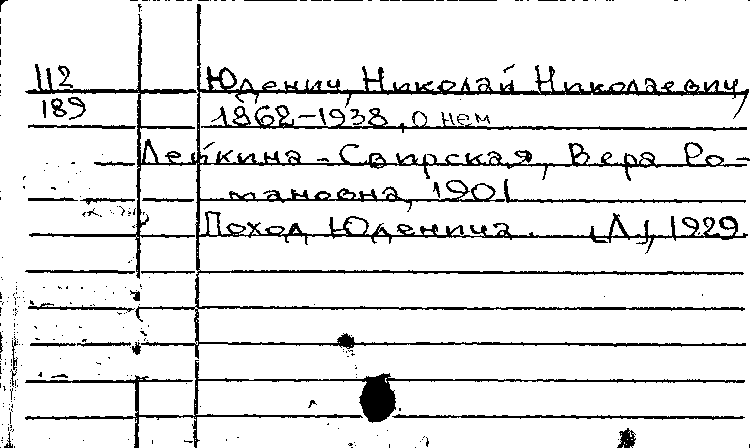 112 Юденич, Николай Николаевич,
189 1862-1938, о нем
Лейкина-Свирская, Вера Ро-
мановна, 1901
Поход Юденича. [Л.], 1929.